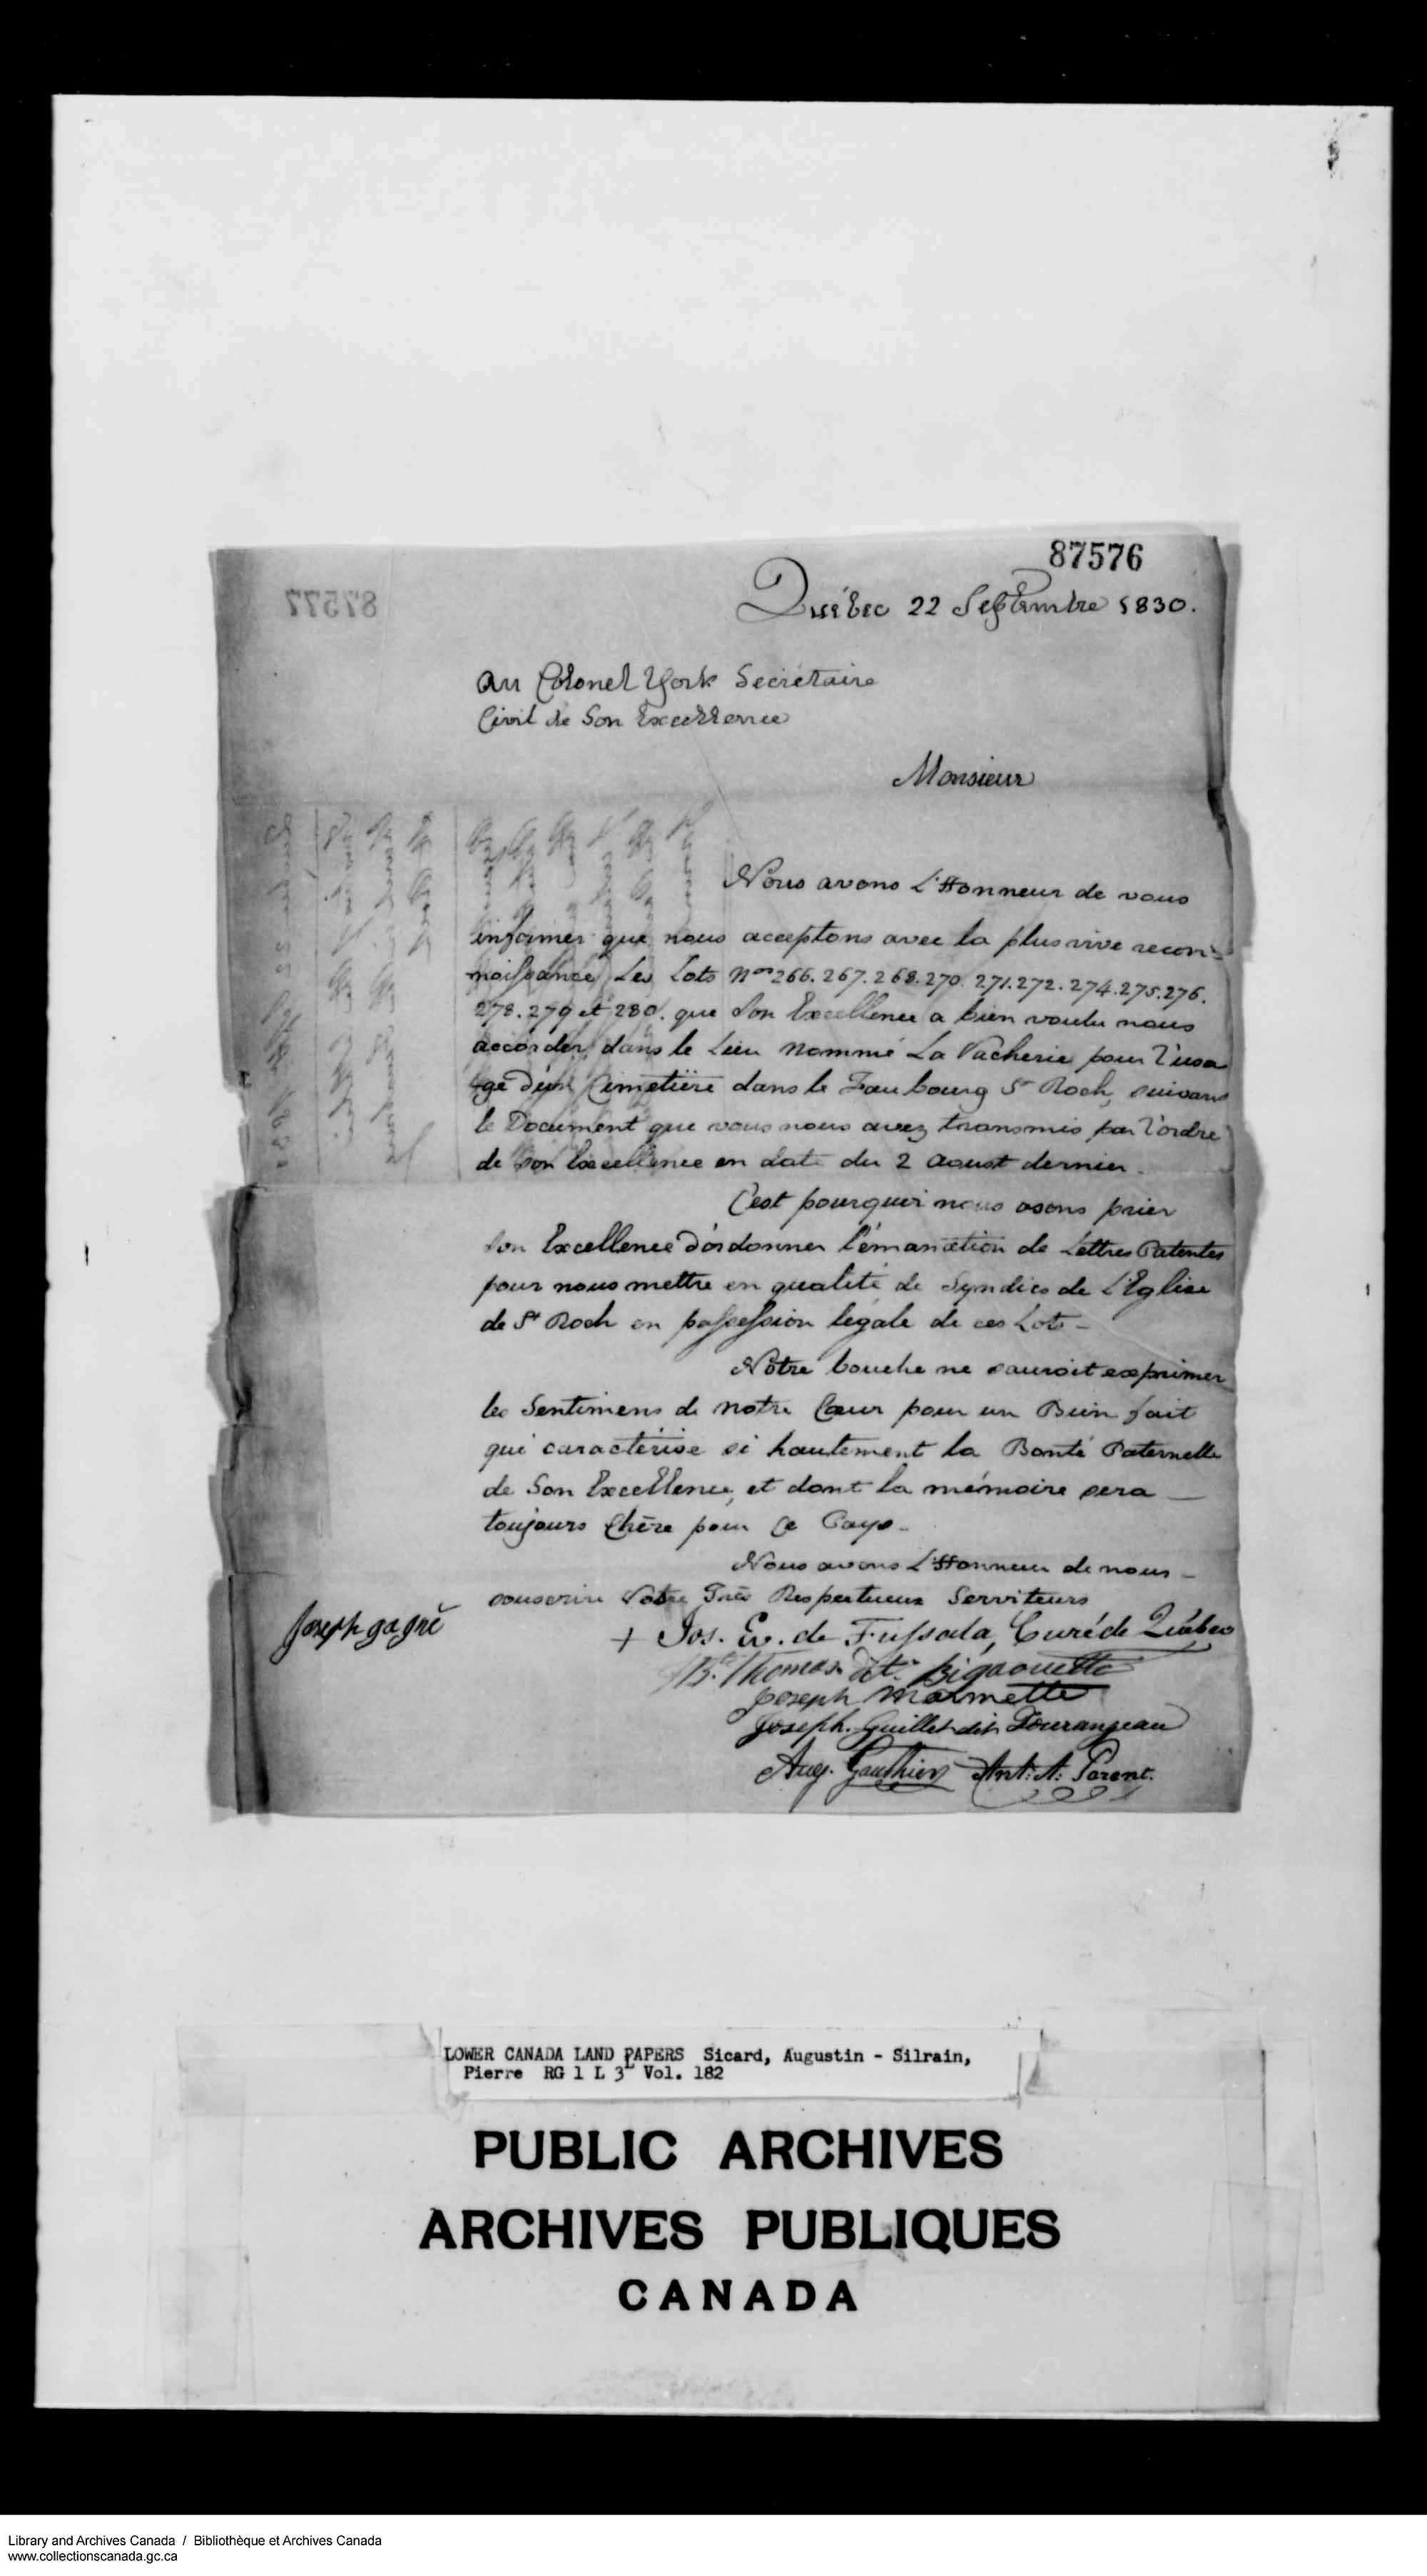 87576
87577
Québec 22 Septembre 1830.
au Colonel York Secrétaire
Civil de Son Excellence
Monsieur
Nous avons L'Honneur de vous
informer que nous acceptons avec la plus vive recon-
noissance Les Lots Nos 266. 267. 268. 270. 271. 272. 274. 275. 276.
278. 279 et 280. que Son Excellence a bien voulu nous
accorder dans le Lieu Nommé La Vacherie pour l'usa
ge d'un Cimetière dans le Faubourg St Roch, suivant
le Document que vous nous avez transmis par l'ordre
de Son Excellence en date du 2 Aoust dernier.
C'est pourquoi nous osons prier
Son Excellence d'ordonner l'émanation de Lettres Patentes
pour nous mettre en qualité de Syndics de L'Eglise
de St Roch en possession légale de ces Lots -
Notre bouche ne sauroit exprimer
les Sentimens de notre Cœur pour un Bien fait
qui caractérise si hautement la Bonté Paternelle
de Son Excellence, et dont la mémoire sera
toujours Chère pour Ce Pays.
Nous avons L'Honneur de nous
souscrire Votre Très Respectueux Serviteurs
Joseph gagné
+ Jos. Ev. de Fussala, Curé de Québec
Thomas dt. Bigaouette
Joseph Marmette
Joseph. Guillet dit Tourangeau
Aug. Gauthier Ant: A: Parent.
LOWER CANADA LAND PAPERS Sicard, Augustin - Silrain,
Pierre RG 1 L 3 Vol. 182
PUBLIC ARCHIVES
ARCHIVES PUBLIQUES
CANADA
Library and Archives Canada / Bibliothèque et Archives Canada
www.collectionscanada.gc.ca